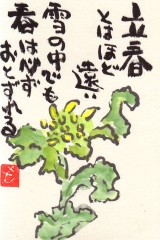 立春
とはほど
遠い
雪の中でも
春は必ず
おとずれる